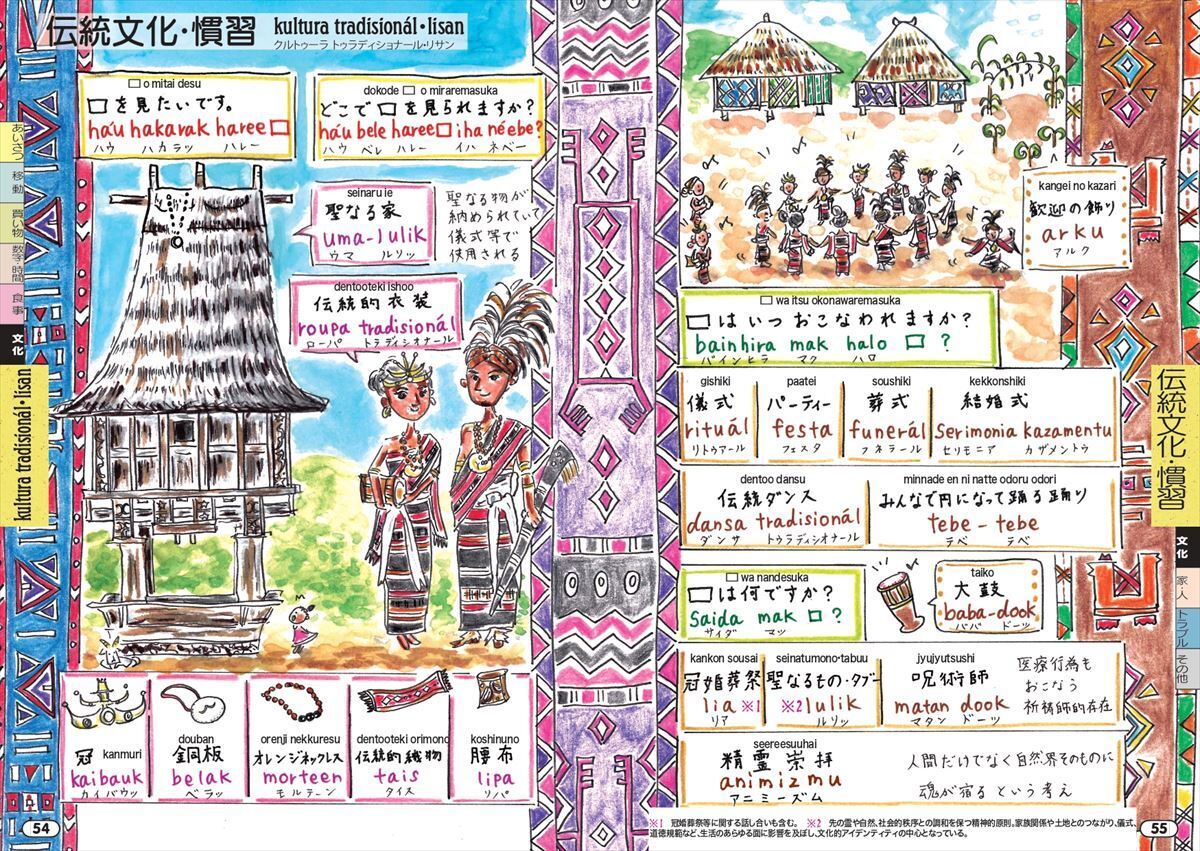 伝統文化・慣習 kultura tradisionál・lisan
クルトゥーラ トゥラディショナール・リサン
□ o mitai desu
□を見たいです。
ha'u hakarak haree □
ハウ ハカラッ ハレー
dokode □ o miraremasuka
どこで □ を見られますか?
ha'u bele haree □ iha ne'ebe?
ハウ ベレ ハレー イハ ネベー
seinaru ie
聖なる家
uma-lulik
ウマ ルリッ
聖なる物が
納められていて
儀式等で
使用される
dentooteki ishoo
伝統的衣装
roupa tradisionál
ローパ トラディシオナール
冠 kanmuri
kaibauk
カイバウッ
douban
銅板
belak
ベラッ
orenji nekkuresu
オレンジネックレス
morteen
モルテーン
dentooteki orimono
伝統的織物
tais
タイス
koshinuno
腰布
lipa
リパ
あいさつ
移動
買い物
数字・時間
食事
文化
kultura tradisionál・lisan
54
kangei no kazari
歓迎の飾り
arku
アルク
□ wa itsu okonawaremasuka
□は いつ おこなわれますか?
bainhira mak halo □ ?
バインヒラ マク ハロ
gishiki
儀式
rituál
リトゥアール
paatei
パーティー
festa
フェスタ
soushiki
葬式
funerál
フネラール
kekkonshiki
結婚式
Serimonia kazamentu
セリモニア カザメントゥ
dentoo dansu
伝統ダンス
dansa tradisionál
ダンサ トゥラディシオナール
minnade en ni natte odoru odori
みんなで円になって踊る踊り
tebe-tebe
テベ テベ
□ wa nandesuka
□は何ですか?
Saida mak □ ?
サイダ マッ
taiko
大鼓
baba-dook
ババ ドーッ
kankon sousai
冠婚葬祭
lia ※1
リア
seinatumono・tabuu
聖なるもの・タブー
※2 lulik
ルリッ
jyujyutsushi
呪術師
matan dook
マタン ドーッ
医療行為も
おこなう
祈祷師的存在
seereesuuhai
精霊崇拝
animizmu
アニミーズム
人間だけでなく自然界そのものに
魂が宿る という考え
※1 冠婚葬祭等に関する話し合いも含む。 ※2 先の霊や自然、社会的秩序との調和を保つ精神的原則。家族関係や土地とのつながり、儀式、
道徳規範など、生活のあらゆる面に影響を及ぼし、文化的アイデンティティの中心となっている。
伝統文化・慣習
文化
家・人
トラブル
その他
55